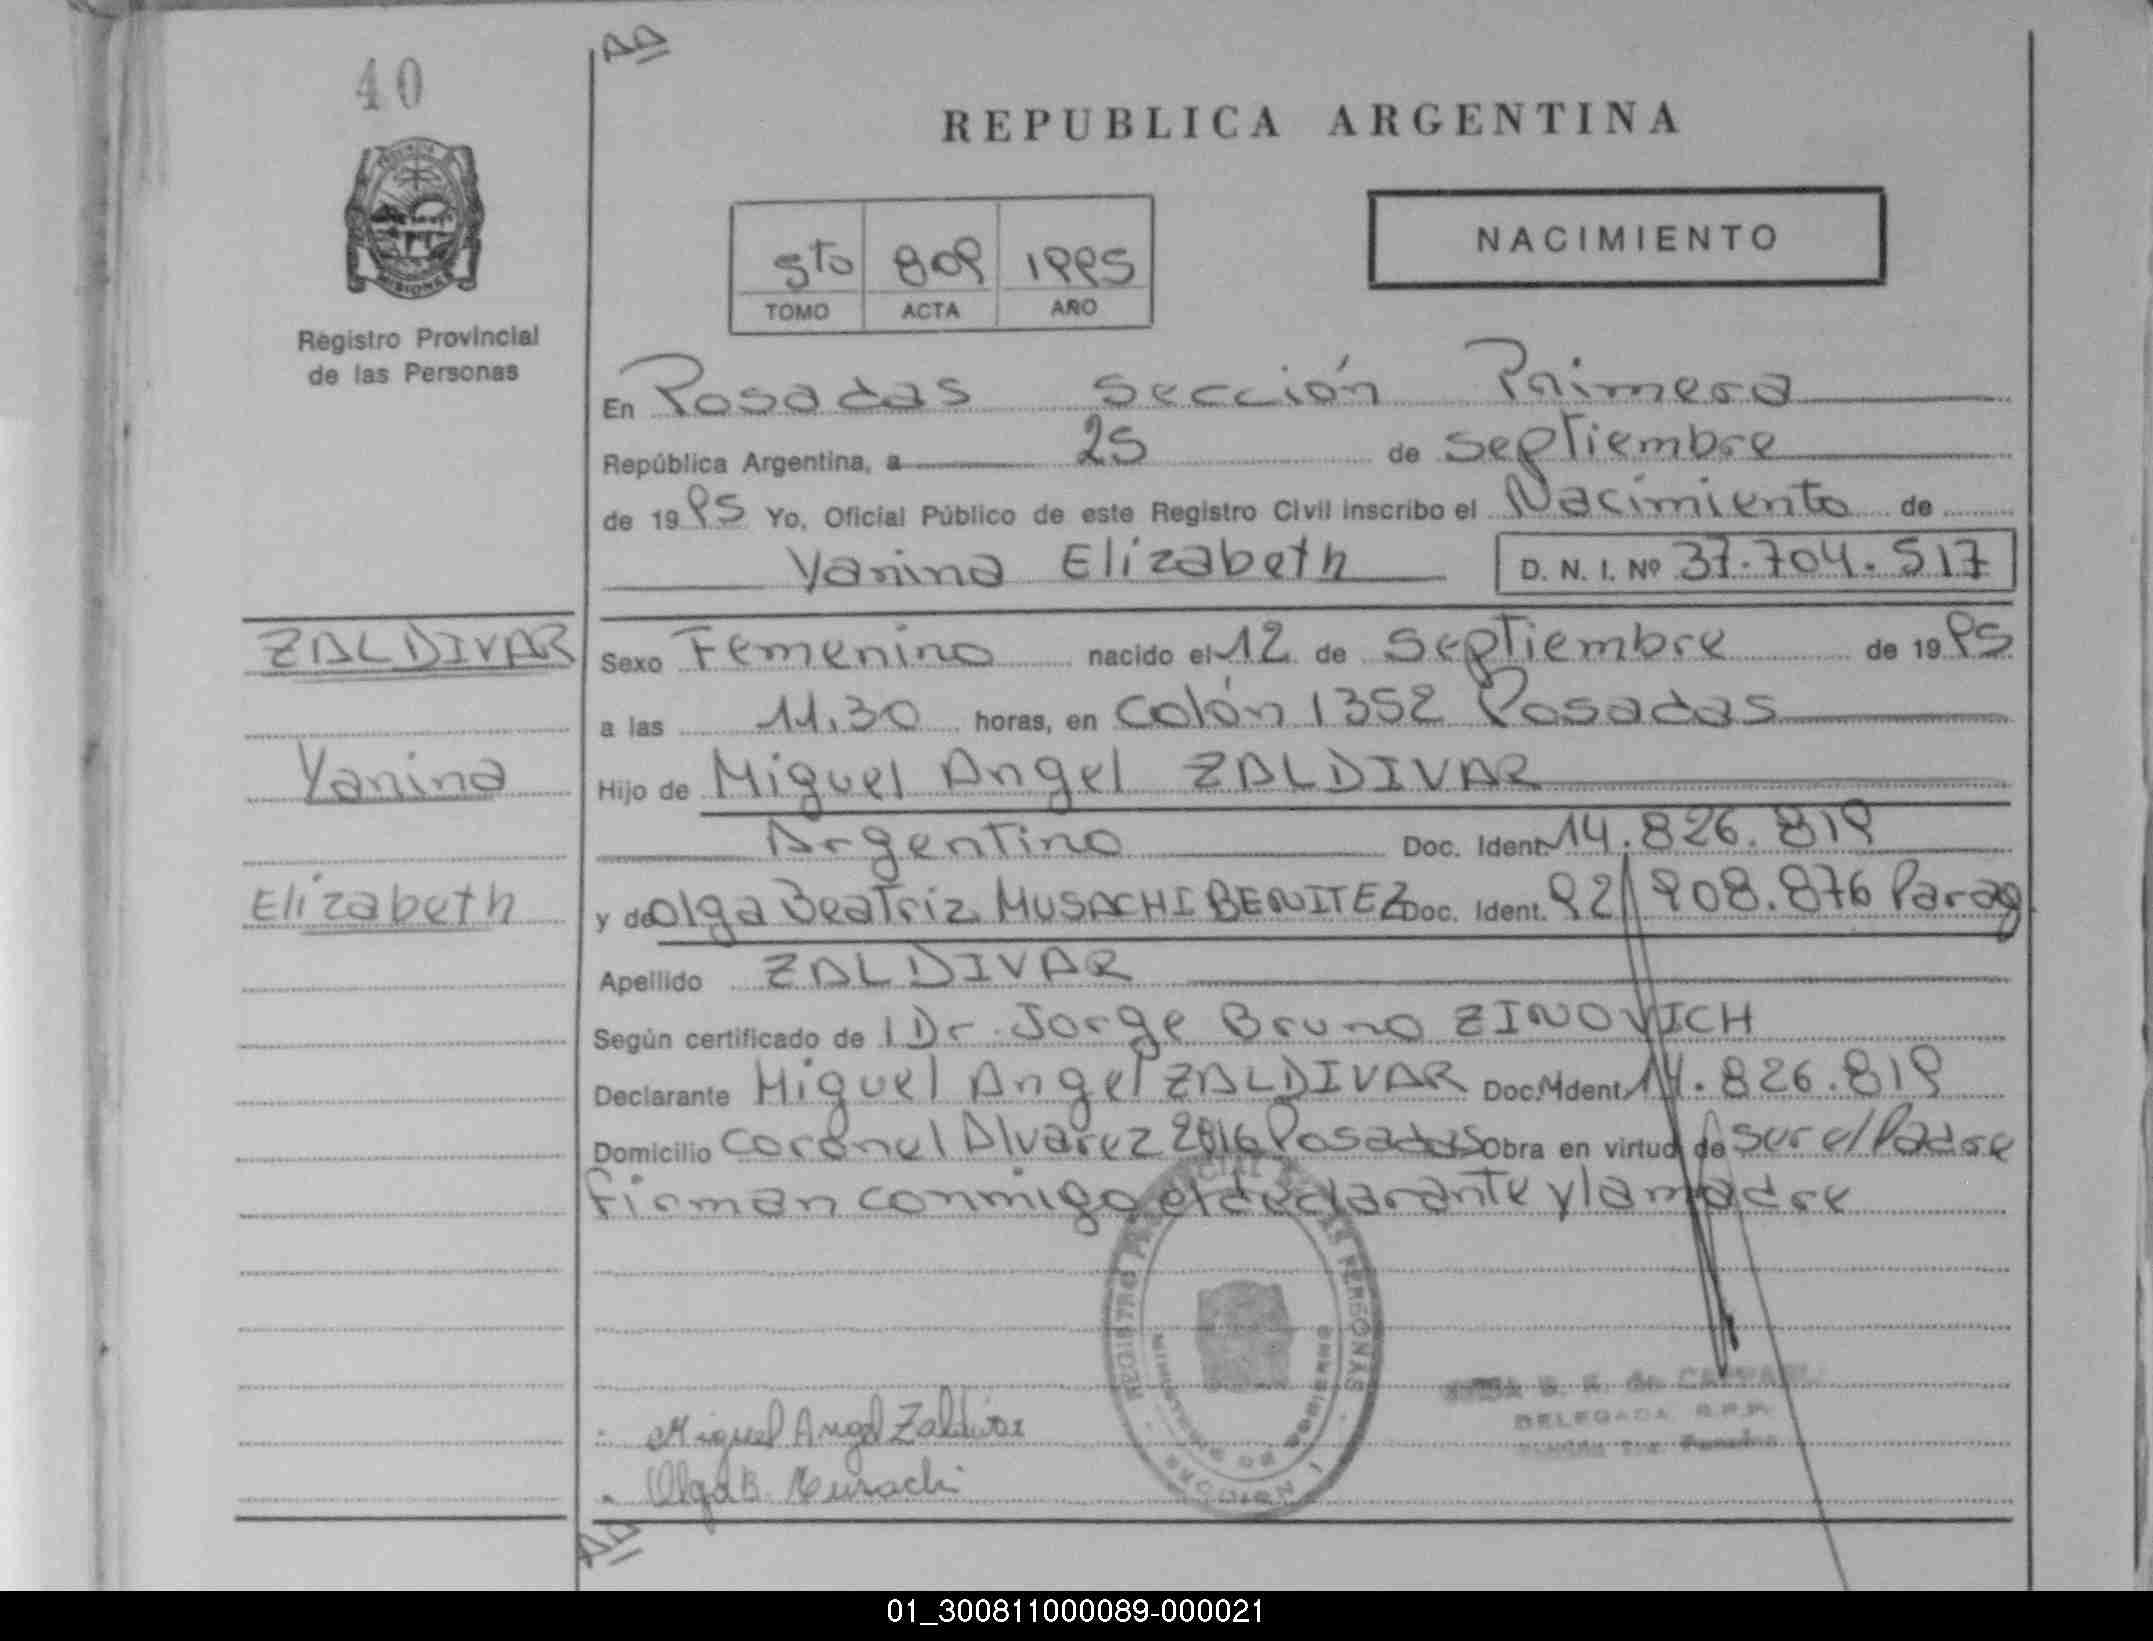 40
AA
REPUBLICA ARGENTINA
5to 809 1995
TOMO ACTA AÑO
NACIMIENTO
Registro Provincial
de las Personas
En Posadas sección Primera
República Argentina, a 25 de septiembre
de 1995 Yo, Oficial Público de este Registro Civil inscribo el Nacimiento de
Yanina Elizabeth D. N. I. Nº 37.704.517
ZALDIVAR
Yanina
Elizabeth
Sexo Femenino nacido el 12 de septiembre de 1995
a las 11,30 horas, en Colón 1352 Posadas
Hijo de Miguel Angel ZALDIVAR
Argentino Doc. Ident. 14.826.819
y de Olga Beatriz MUSACHI BENITEZ Doc. Ident. 92.908.876 Parag
Apellido ZALDIVAR
Según certificado de Dr. Jorge Bruno ZINOVICH
Declarante Miguel Angel ZALDIVAR Doc. Ident. 14.826.819
Domicilio Coronel Alvarez 2816 Posadas Obra en virtud de ser el Padre
firman conmigo el declarante y la madre
REGISTRO PROVINCIAL DE LAS PERSONAS
MINISTERIO DE GOBIERNO
MISIONES
DELEGADA R.P.P.
Miguel Angel Zaldivar
Olga B. Musachi
AA
01_300811000089-000021